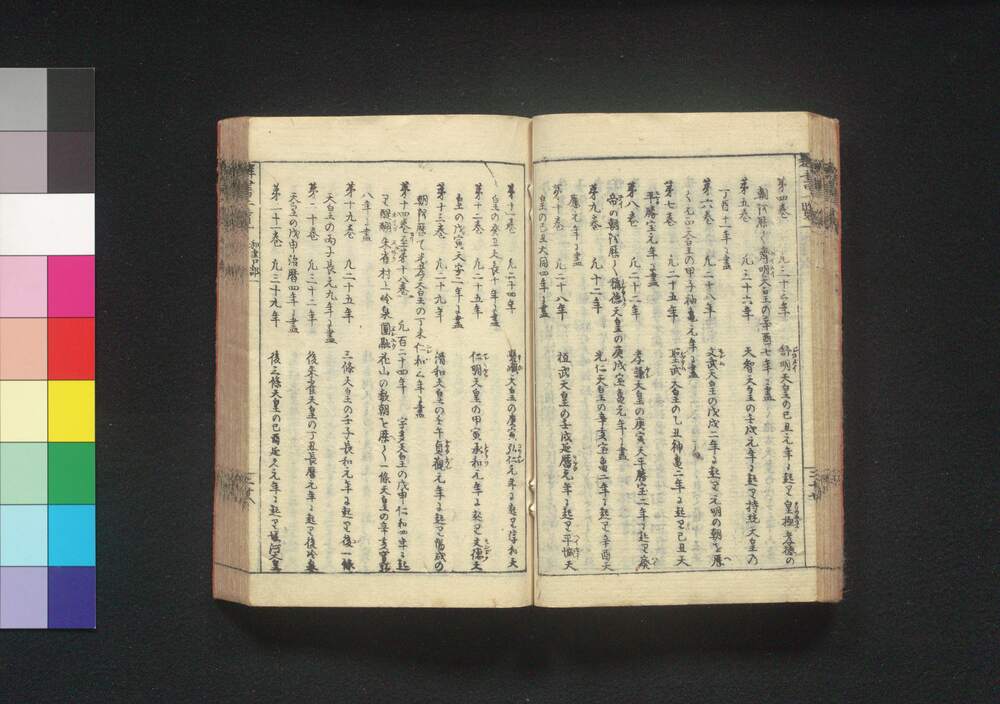 第四巻 凡三十三年 舒明天皇の己丑元年に起り 皇極孝徳の
朝を歴て斉明天皇の辛酉七年に盡
第五巻 凡三十六年 天智天皇の壬戌元年に起り持統天皇の
丁酉十一年に盡
第六巻 凡二十八年 文武天皇の戊戌二年に起り元明の朝を歴
て元正天皇の甲子神亀元年に盡
第七巻 凡二十五年 聖武天皇の乙丑神亀二年に起り己丑天
平勝宝元年に盡
第八巻 凡二十二年 孝謙天皇の庚寅天平勝宝二年に起り廃
帝の朝を歴て称徳天皇の庚戌宝亀元年に盡
第九巻 凡十二年 光仁天皇の辛亥宝亀二年に起り辛酉天
應元年に盡
第十巻 凡二十八年 桓武天皇の壬戌延暦元年に起り平城天
皇の己丑大同四年に盡
群書一覧
第十一巻 凡二十四年 嵯峨天皇の庚寅弘仁元年に起り淳和天
皇の癸丑天長十年に盡
第十二巻 凡二十五年 仁明天皇の甲寅承和元年に起り文徳天
皇の戊寅天安二年に盡
第十三巻 凡二十九年 清和天皇の 貞観元年に起り陽成の
朝を歴て光孝天皇の丁未仁和三年に盡
第十四巻至第十八巻 凡一百二十四年 宇多天皇の戊申仁和四年に起
り醍醐朱雀村上冷泉圓融花山の数朝を歴て一條天皇の辛亥寛弘
八年に盡
第十九巻 凡二十五年 三條天皇の壬子長和元年に起り後一條
天皇の丙子長元九年に盡
第二十巻 凡三十二年 後朱雀天皇の丁丑長暦元年に起り後冷泉
天皇の戊申治暦四年に盡
第二十一巻 凡三十九年 後三條天皇の己酉延久元年に起り堀河天皇
群書一覧